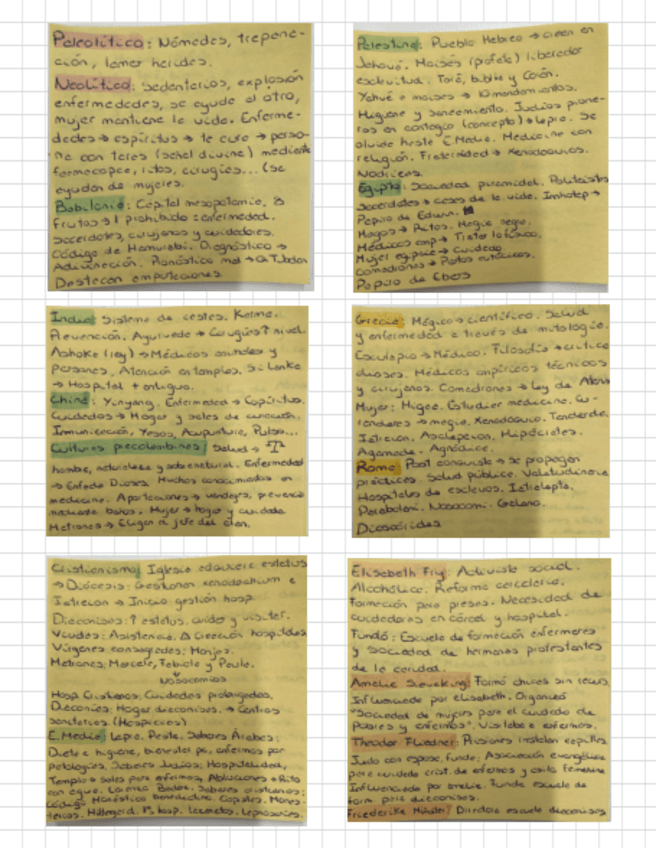 Paleolítico: Nómedes, trepene-
ción, lemer heridas.
Neolítico: Sedentarios, explosión
enfermededes, se ayude al otro,
mujer mantiene la vida. Enferme-
dedes → espíritus → te cure → perso-
ne con teres (señal divine) mediente
formecopee, ritos, cirugíes... (se
eyudan de mujeres.
Babilonia: Capital mesopotamie. 8
frutos → 1 prohibido = enfermedad.
Sacerdotes, cirujanos y cuidadores.
Código de Hamurabi. Diagnóstico →
Adivinación. Pronóstico mal →
Destacan amputaciones
Palestina: Pueblo Hebreo → creen en
Jehová. Moisés (profeta) liberador
esclavitud. Torá, biblia y Corán.
Yahvé a moises → 10 mandamientos.
Higiene y saneamiento. Judíos pione-
ros en contagio (concepto) → lepra. Se
olvida hasta E.Media. Medicina con
religión. Fraternidad → Xenodoquios.
Nodrizas.
Egipto: Sociedad piramidal. Politeistas
Sacerdotes → casas de la vida. Imhotep →
Papiro de Edwin.
Magos → Ritos. Magia negra.
Médicos emp → Trata lo físico.
Mujer egipcia → Cuidado.
comadronas → Partos
Papiro de Ebers
India: Sistema de castas. Karma.
Prevención. Ayurveda → Cirugías ↑ nivel.
Ashoka (rey) → Médicos animales y
personas. Atención en templos. Sri Lanka
→ Hospital + antiguo.
China: Yinyang. Enfermedad → Espíritus.
Cuidados → Hogar y salas de curación.
Inmunización, Yesos, Acupuntura, Pulso...
Culturas precolombinas: Salud →
hombre, naturaleza y sobrenatural. Enfermedad
→ Enfado Dioses. Muchos conocimientos en
medicina. Aportaciones → vendajes, prevencio
mediante baños. Mujer → hogar y cuidado
Matronas → Eligen a jefe del clan.
Grecia: Mágico → científico. Salud
y enfermedad a través de mitología.
Esculapio → Médico. Filosofía → critica
dioses. Médicos empíricos técnicos
y cirujanos. Comadronas → Ley de
Mujer: Higea. Estudiar medicina. Cu-
randeras → magia. Xenodoquio.
Iatreion. Asclepeion. Hipócrates.
Agamede. Agnódice.
Roma: Post conquista → se propagan
prácticas. Salud pública. Valetudinaria
Hospitales de esclavos. Iatrolepta.
Parabolani. Nosocomi. Galeno.
Dioscórides
Cristianismo: Iglesia adquiere estatus
→ Diócesis: Gestionan xenodochium e
Iatreion → Inicio gestión hosp.
Diaconisas: ↑ estatus, cuidar y visitar.
Viudas: Asistencia. Δ Creación hospitales
Vírgenes consagradas: Monjas.
Matronas: Marcela, Fabiola y Paula.
Nosocomios
Hosp Cristianos: Cuidados prolongados.
Diaconías: Hogar diaconisas. → Centros
sanitarios. (Hospicios)
E.Media: Lepra. Peste. Saberes Árabes:
Dieta e higiene, bienestar ps, enfermos por
patologías. Saberes Judíos: Hospitalidad,
Templos → salas para enfermos, Abluciones → Rito
con agua. Baños. Saberes cristianos:
Código Monástico Benedictino. Copistas. Monas-
terios. Hildegard. 1º hosp. Lazaretos. Leproserías.
Elisabeth Fry: Activista social.
Alcohólico. Reforma carcelaria.
Formación para presas. Necesidad de
cuidadoras en cárcel y hospital.
Fundó: Escuela de formación enfermeras
y Sociedad de hermanas protestantes
de la caridad.
Amalie Sieveking: Formó chicas sin recurs
Influenciada por elisabeth. Organizó
"Sociedad de mujeres para el cuidado de
Pobres y enfermos". Visitaba a enfermos.
Theodor Fliedner: Prisiones instalan capillas
Junto con esposa, funda: Asociación evangélica
para cuidado crist. de enfermos y asilo femenino
Influenciado por amalie. Funda escuela de
form para diaconisas.
Friederike Münster: Directora escuela diaconisas